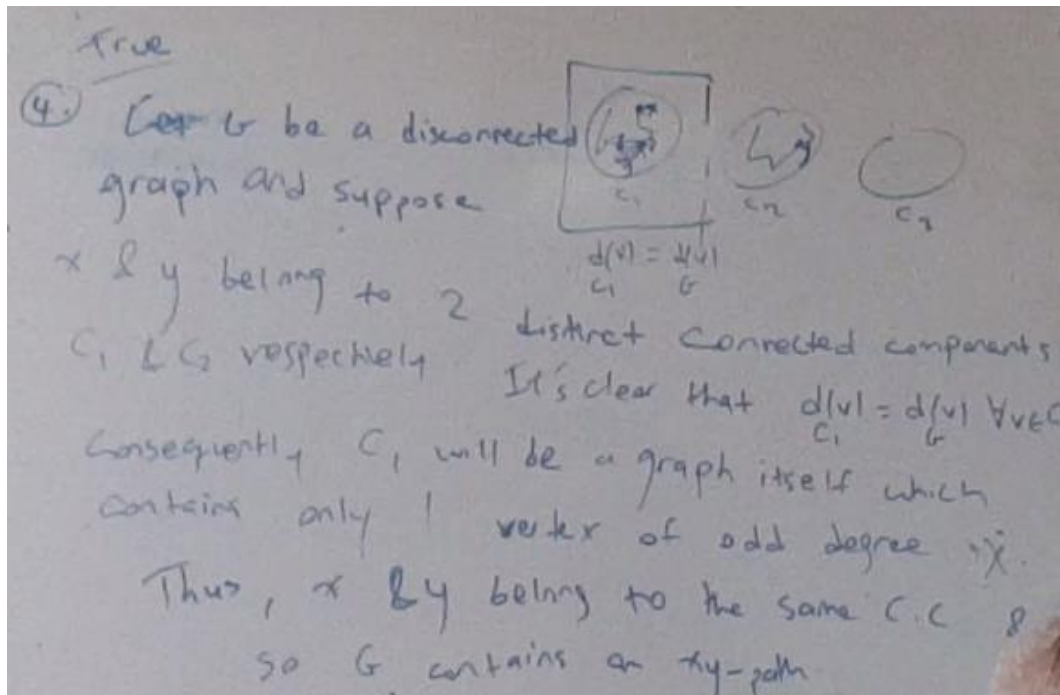 True
4. Let G be a disconnected
graph and suppose
C1 C2 C3
d(v) = d(v)
C1 G
x & y belong to 2 distinct connected components
C1 & C2 respectively It's clear that d(v) = d(v) ∀v∈C
C1 G
Consequently C1 will be a graph itself which
contains only 1 vertex of odd degree
Thus, x & y belong to the same C.C &
so G contains an xy-path